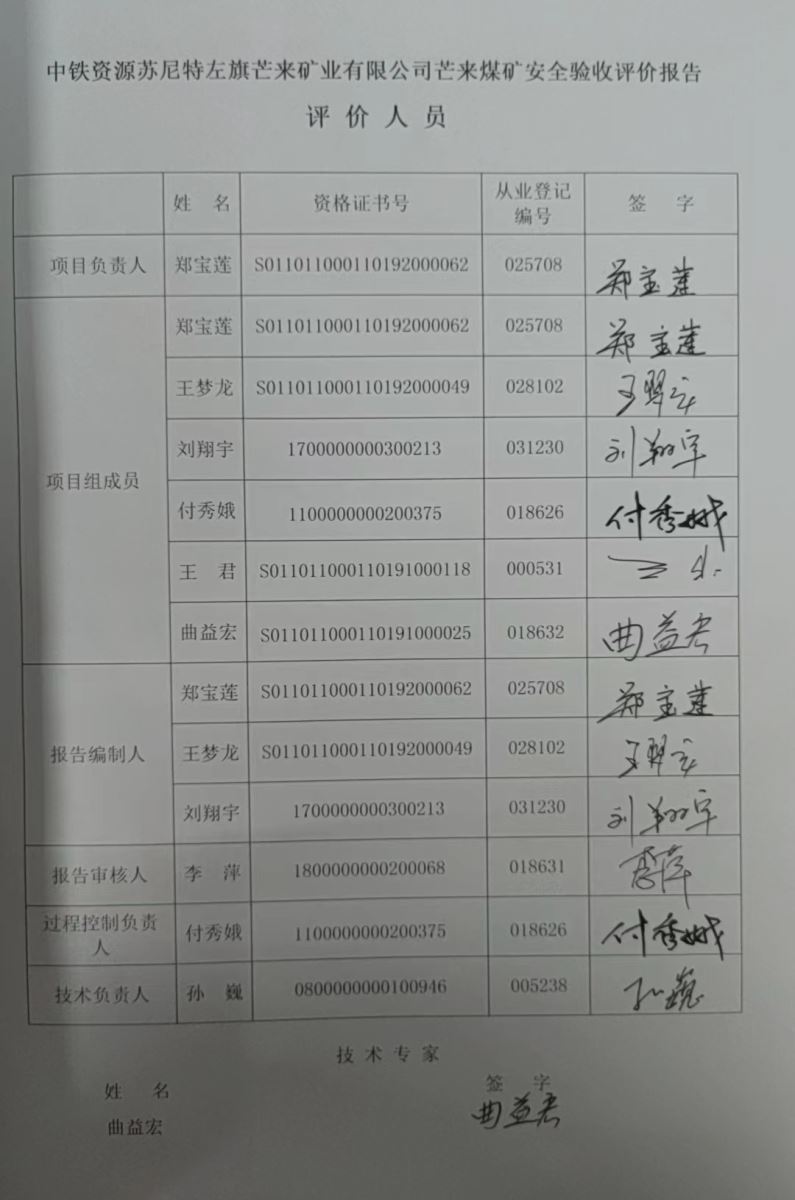 中铁资源苏尼特左旗芒来矿业有限公司芒来煤矿安全验收评价报告
评价人员
姓 名 资格证书号 从业登记编号 签 字
项目负责人 郑宝莲 S011011000110192000062 025708 郑宝莲
项目组成员 郑宝莲 S011011000110192000062 025708 郑宝莲
王梦龙 S011011000110192000049 028102
刘翔宇 1700000000300213 031230 刘翔宇
付秀娥 1100000000200375 018626 付秀娥
王 君 S011011000110191000118 000531
曲益宏 S011011000110191000025 018632 曲益宏
报告编制人 郑宝莲 S011011000110192000062 025708 郑宝莲
王梦龙 S011011000110192000049 028102
刘翔宇 1700000000300213 031230 刘翔宇
报告审核人 李 萍 1800000000200068 018631 李萍
过程控制负责人 付秀娥 1100000000200375 018626 付秀娥
技术负责人 孙 巍 0800000000100946 005238 孙巍
技术专家
姓 名 签 字
曲益宏 曲益宏